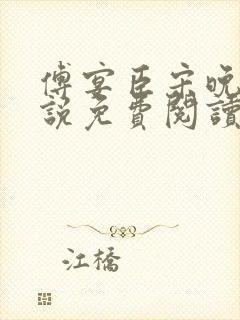 傅宴臣宋晚
說免費閱讀
江橋